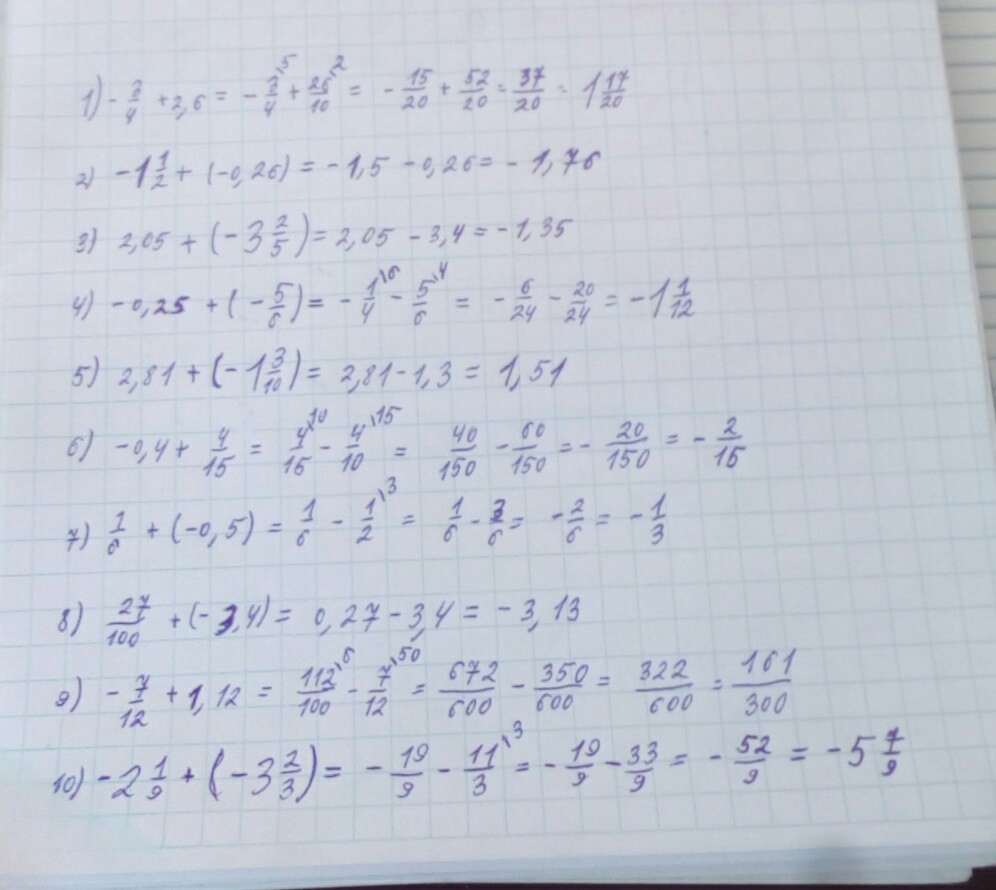 1) -3/4 + 2,6 = -3/4\5 + 26/10\2 = -15/20 + 52/20 = 37/20 = 1 17/20
2) -1 1/2 + (-0,26) = -1,5 - 0,26 = -1,76
3) 2,05 + (-3 2/5) = 2,05 - 3,4 = -1,35
4) -0,25 + (-5/6) = -1/4\6 - 5/6\4 = -6/24 - 20/24 = -1 1/12
5) 2,81 + (-1 3/10) = 2,81 - 1,3 = 1,51
6) -0,4 + 4/15 = 4/15\10 - 4/10\15 = 40/150 - 60/150 = -20/150 = -2/15
7) 1/6 + (-0,5) = 1/6 - 1/2\3 = 1/6 - 3/6 = -2/6 = -1/3
8) 27/100 + (-3,4) = 0,27 - 3,4 = -3,13
9) -7/12 + 1,12 = 112/100\6 - 7/12\50 = 672/600 - 350/600 = 322/600 = 161/300
10) -2 1/9 + (-3 2/3) = -19/9 - 11/3\3 = -19/9 - 33/9 = -52/9 = -5 7/9